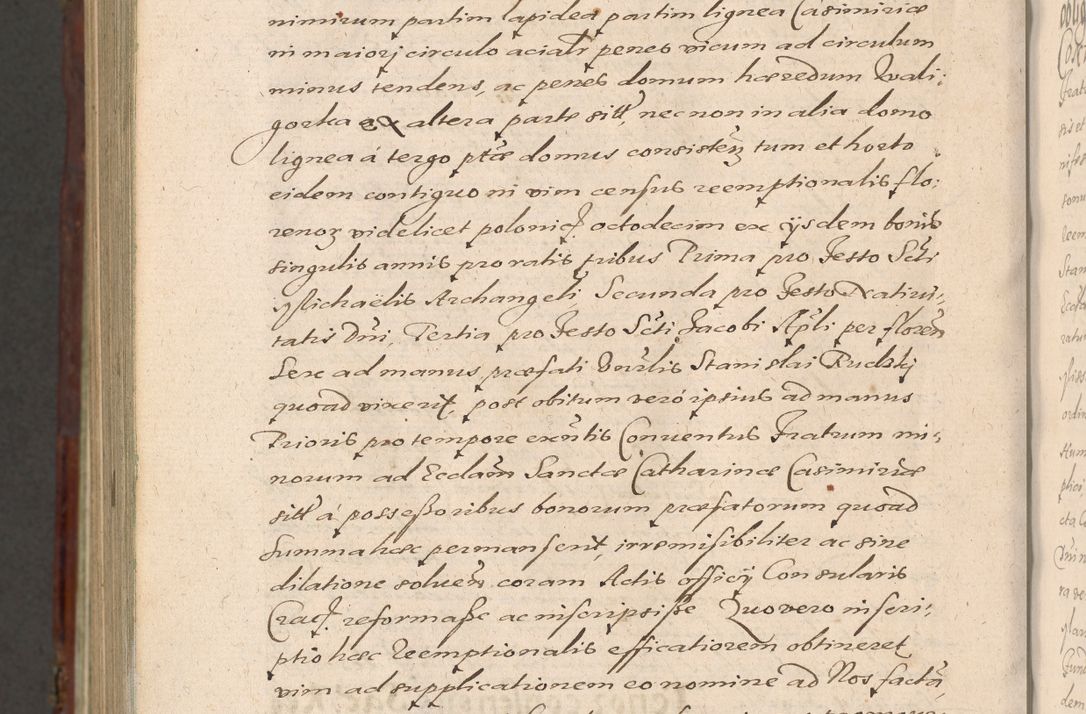 nimirum partim lapidea partim lignea Casimiriæ
in maiorj circulo aciali penes vicum ad circulum
minus tendens, ac penes domum hæredum Wali:
gorka ex altera parte sitt, nec non in alia domo
lignea á tergo ptæ domus consisten tum et horto
eidem contiguo in vim census reemptionalis flo:
renoz videlicet polonicł octodecim ex ijsdem bonis
singulis annis pro ratis tribus Prima pro Festo Scti
Michaelis Archangeli Secunda pro Festo Natiui:
tatis Dni, Tertia pro Festo Scti Jacobi Apli per floren
Sex ad manus præfati Vnrlis Stanislai Rudzkj
quoad vixerit, post obitum veró ipsius ad manus
Prioris pro tempore exntis Conuentus Fratrum mi:
norum ad Ecclam Sanctæ Catharinæ Casimiriæ
sitt á possessoribus bonorum præfatorum quoad
summa hæc permanserit, irremisibiliter ac sine
dilatione soluen coram Actis officij Consularis
Cracł reformasse ac inscripsisse Quo vero inscri:
ptio hæc Reemptionalis efficatiorem obtineret
vim ad supplicationem eo nomine ad Nos factã